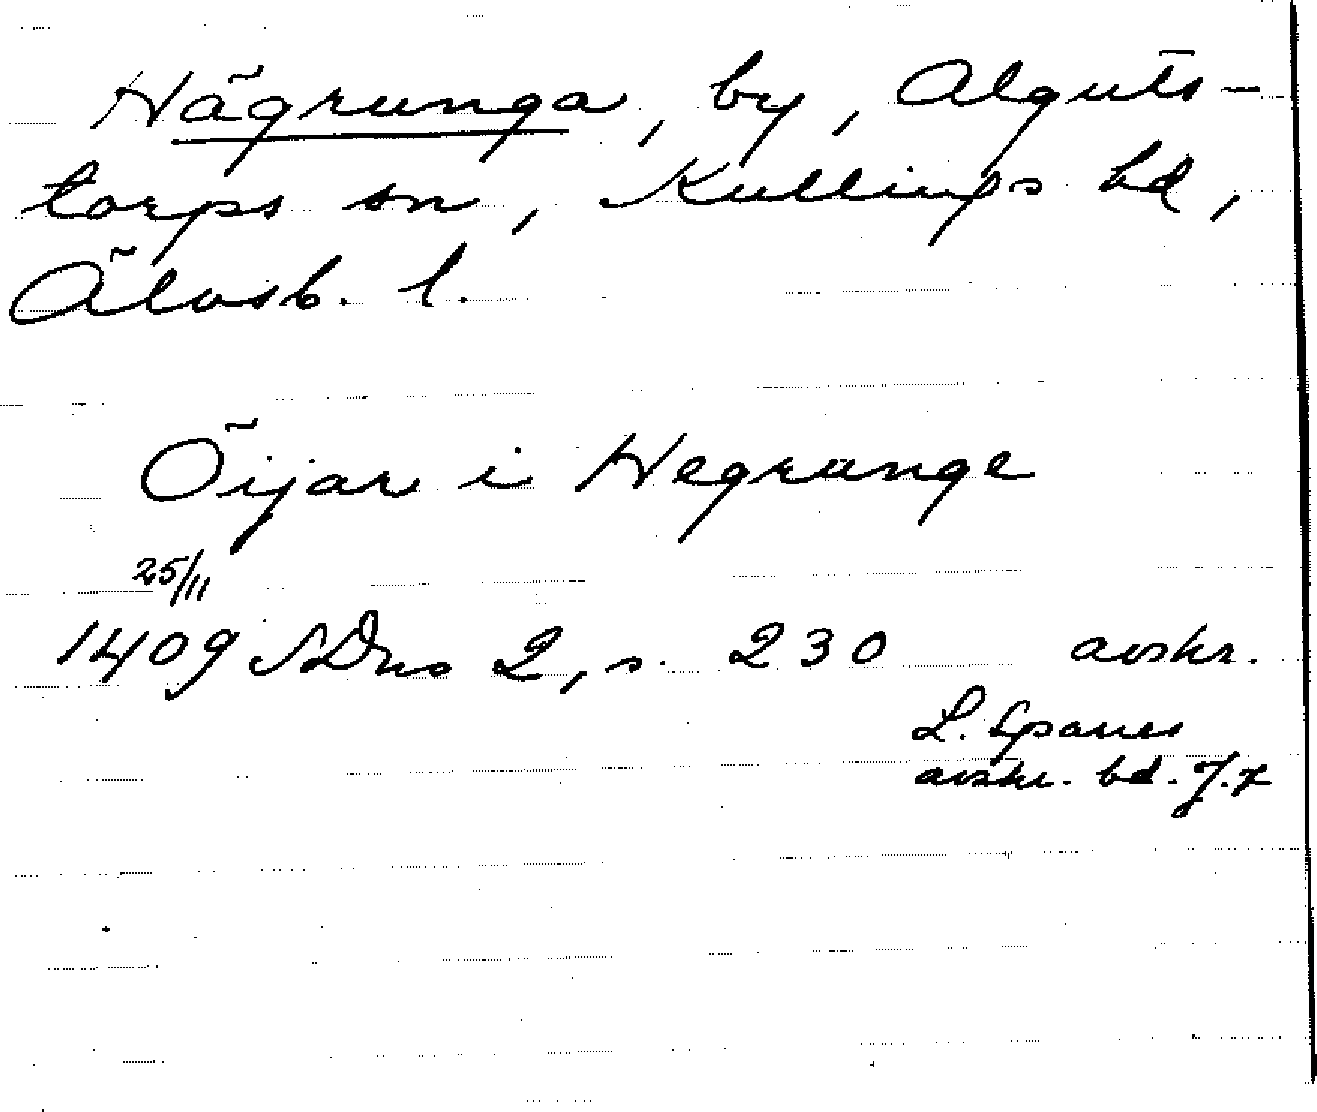 Hägrunga, by, Alguts-
torps sn, Kullings hd,
Älvsb. l.
Öijar i Hegrunge
25/11
1409 SDns 2, s. 230 avskr.
L. Spanes
avskr. bd. 7.7